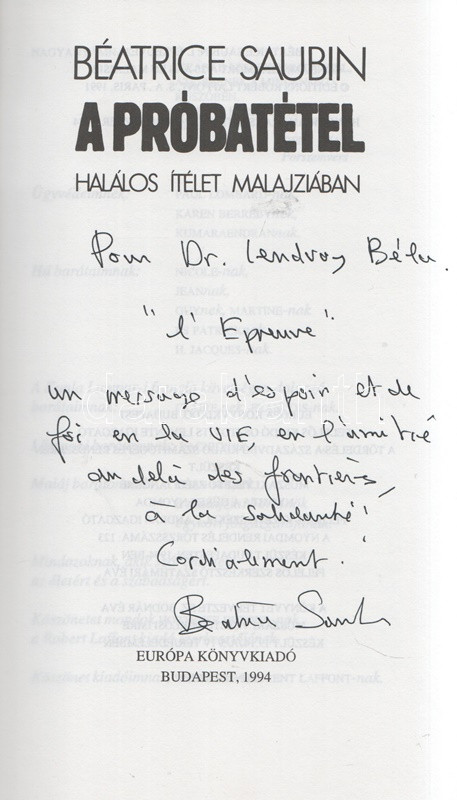 BÉATRICE SAUBIN
A PRÓBATÉTEL
HALÁLOS ÍTÉLET MALAJZIÁBAN
Pour Dr. Lendvay Béla.
"l'Epreuve"
un message d'espoir et de
foi en la VIE, en l'amitié
au delà des frontières,
à la solidarité!
Cordialement.
Béatrice Saubin
EURÓPA KÖNYVKIADÓ
BUDAPEST, 1994